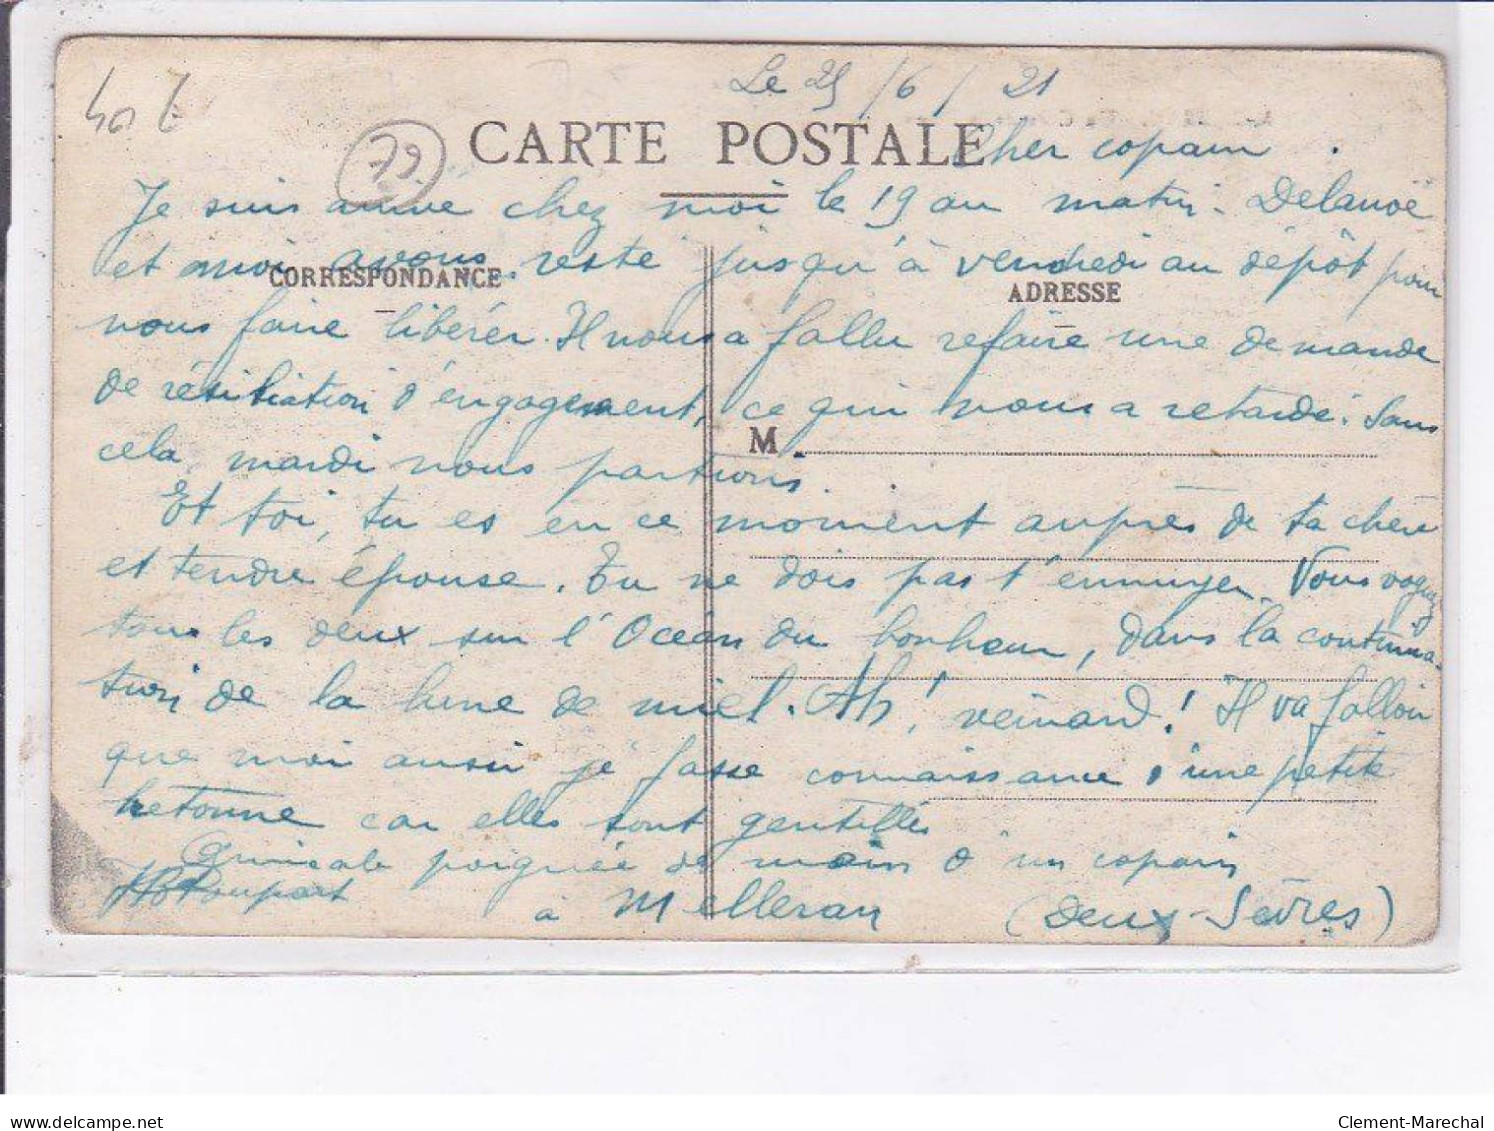 Le 25/6/21
40 E
79
CARTE POSTALE
Cher copain.
Je suis arrivé chez moi le 19 au matin. Delanoë
et moi avons resté jusqu'à vendredi au dépôt pour
CORRESPONDANCE
ADRESSE
nous faire libérer. Il nous a fallu refaire une demande
de résiliation d'engagement, ce qui nous a retardé. Sans
M
cela, mardi nous partions.
Et toi, tu es en ce moment auprès de ta chère
et tendre épouse. Tu ne dois pas t'ennuyer. Vous voguez
tous les deux sur l'Océan du bonheur, dans la continua-
tion de la lune de miel. Ah! veinard! Il va falloir
que moi aussi je fasse connaissance d'une petite
car elles sont gentilles
Amicale poignée de main d'un copain
Poupart
à Melleran (Deux-Sèvres)
delcampe.net
Clement-Marechal